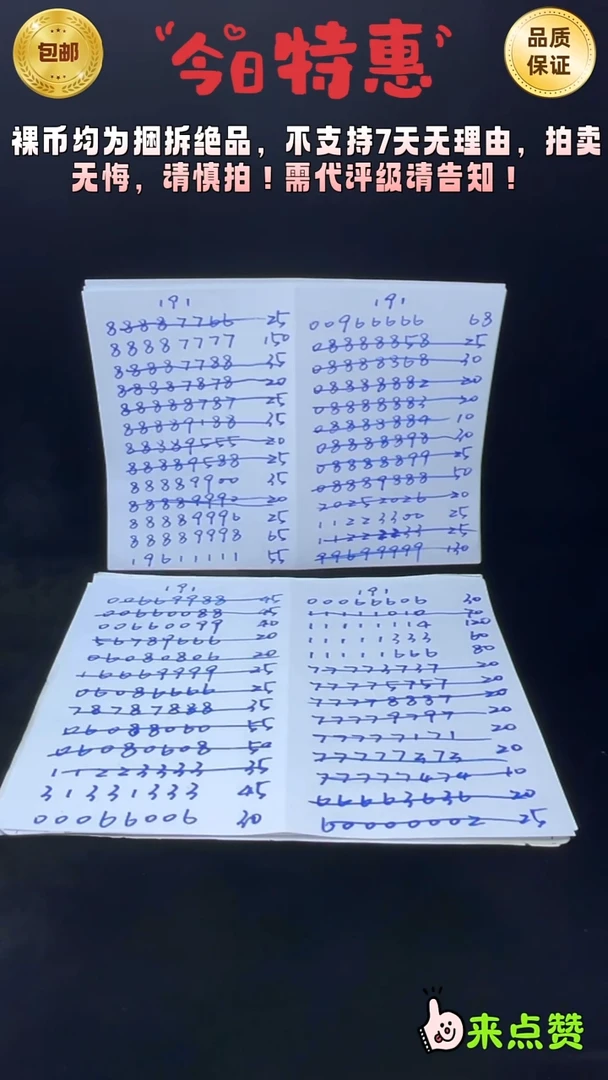 包邮
今日特惠
品质
保证
裸币均为捆拆绝品，不支持7天无理由，拍卖
无悔，请慎拍！需代评级请告知！
191
88887766 25
88887777 150
88887788 35
88887878 20
88888787 25
88889188 35
88889555 20
88889588 25
88889900 35
88889992 20
88889996 25
88889998 65
19611111 55
191
00966666 68
08888858 25
08888868 30
08888882 20
08888883 20
08888884 10
08888898 30
08888899 25
08889888 50
20252026 20
11223300 25
11222233 25
99699999 130
191
00669988 45
00660088 45
00660099 40
56789666 20
06080806 20
16669999 25
06086666 25
78787888 35
06088060 55
06080608 50
11223333 35
31331333 45
00066006 30
191
00066606 30
11111010 70
11111114 120
11111333 60
11111666 80
77773737 20
77775757 20
77778837 20
77779797 20
77777171 20
77777373 20
77777474 10
66663636 20
60000002 25
来点赞